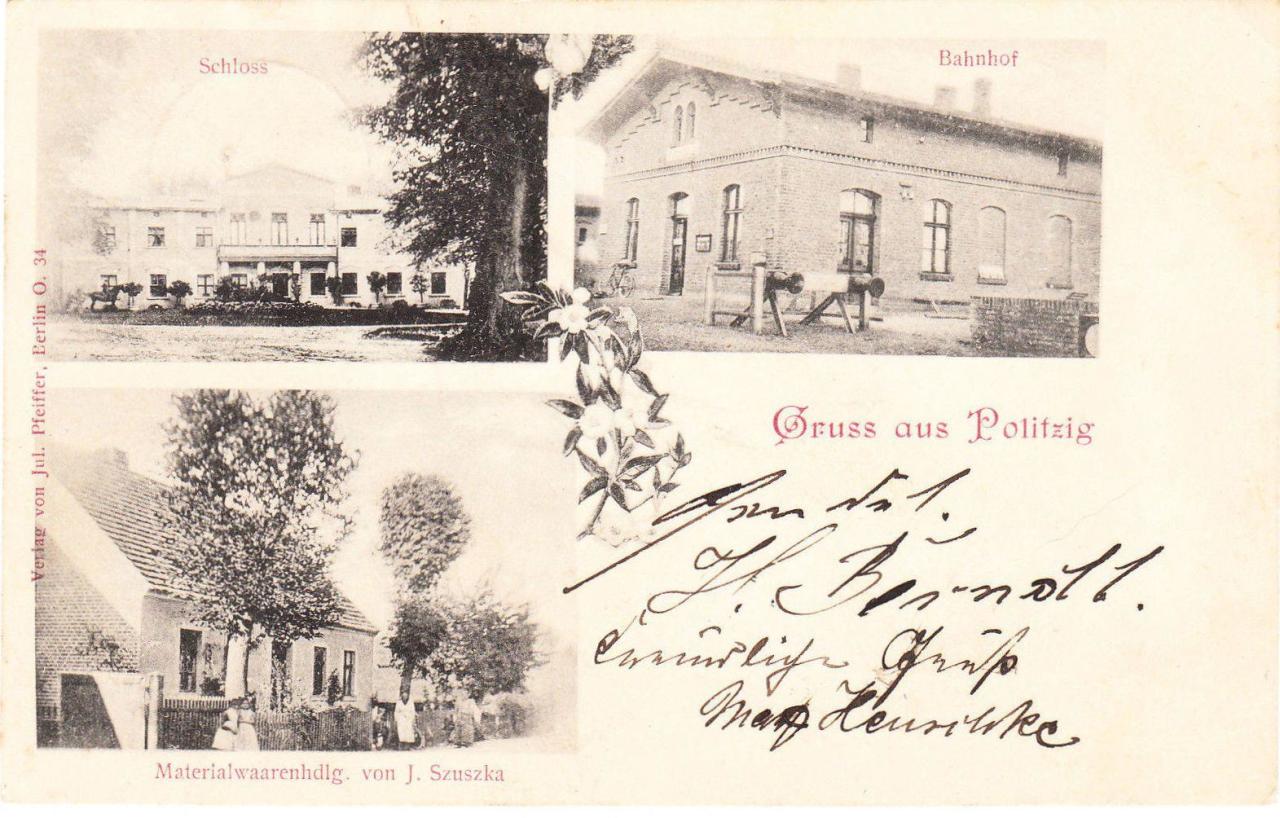 Schloss
Bahnhof
Verlag von Jul. Pfeiffer, Berlin O. 34
Gruss aus Politzig
H. Berndt.
Freundliche Gruß
Max
Materialwaarenhdlg. von J. Szuszka